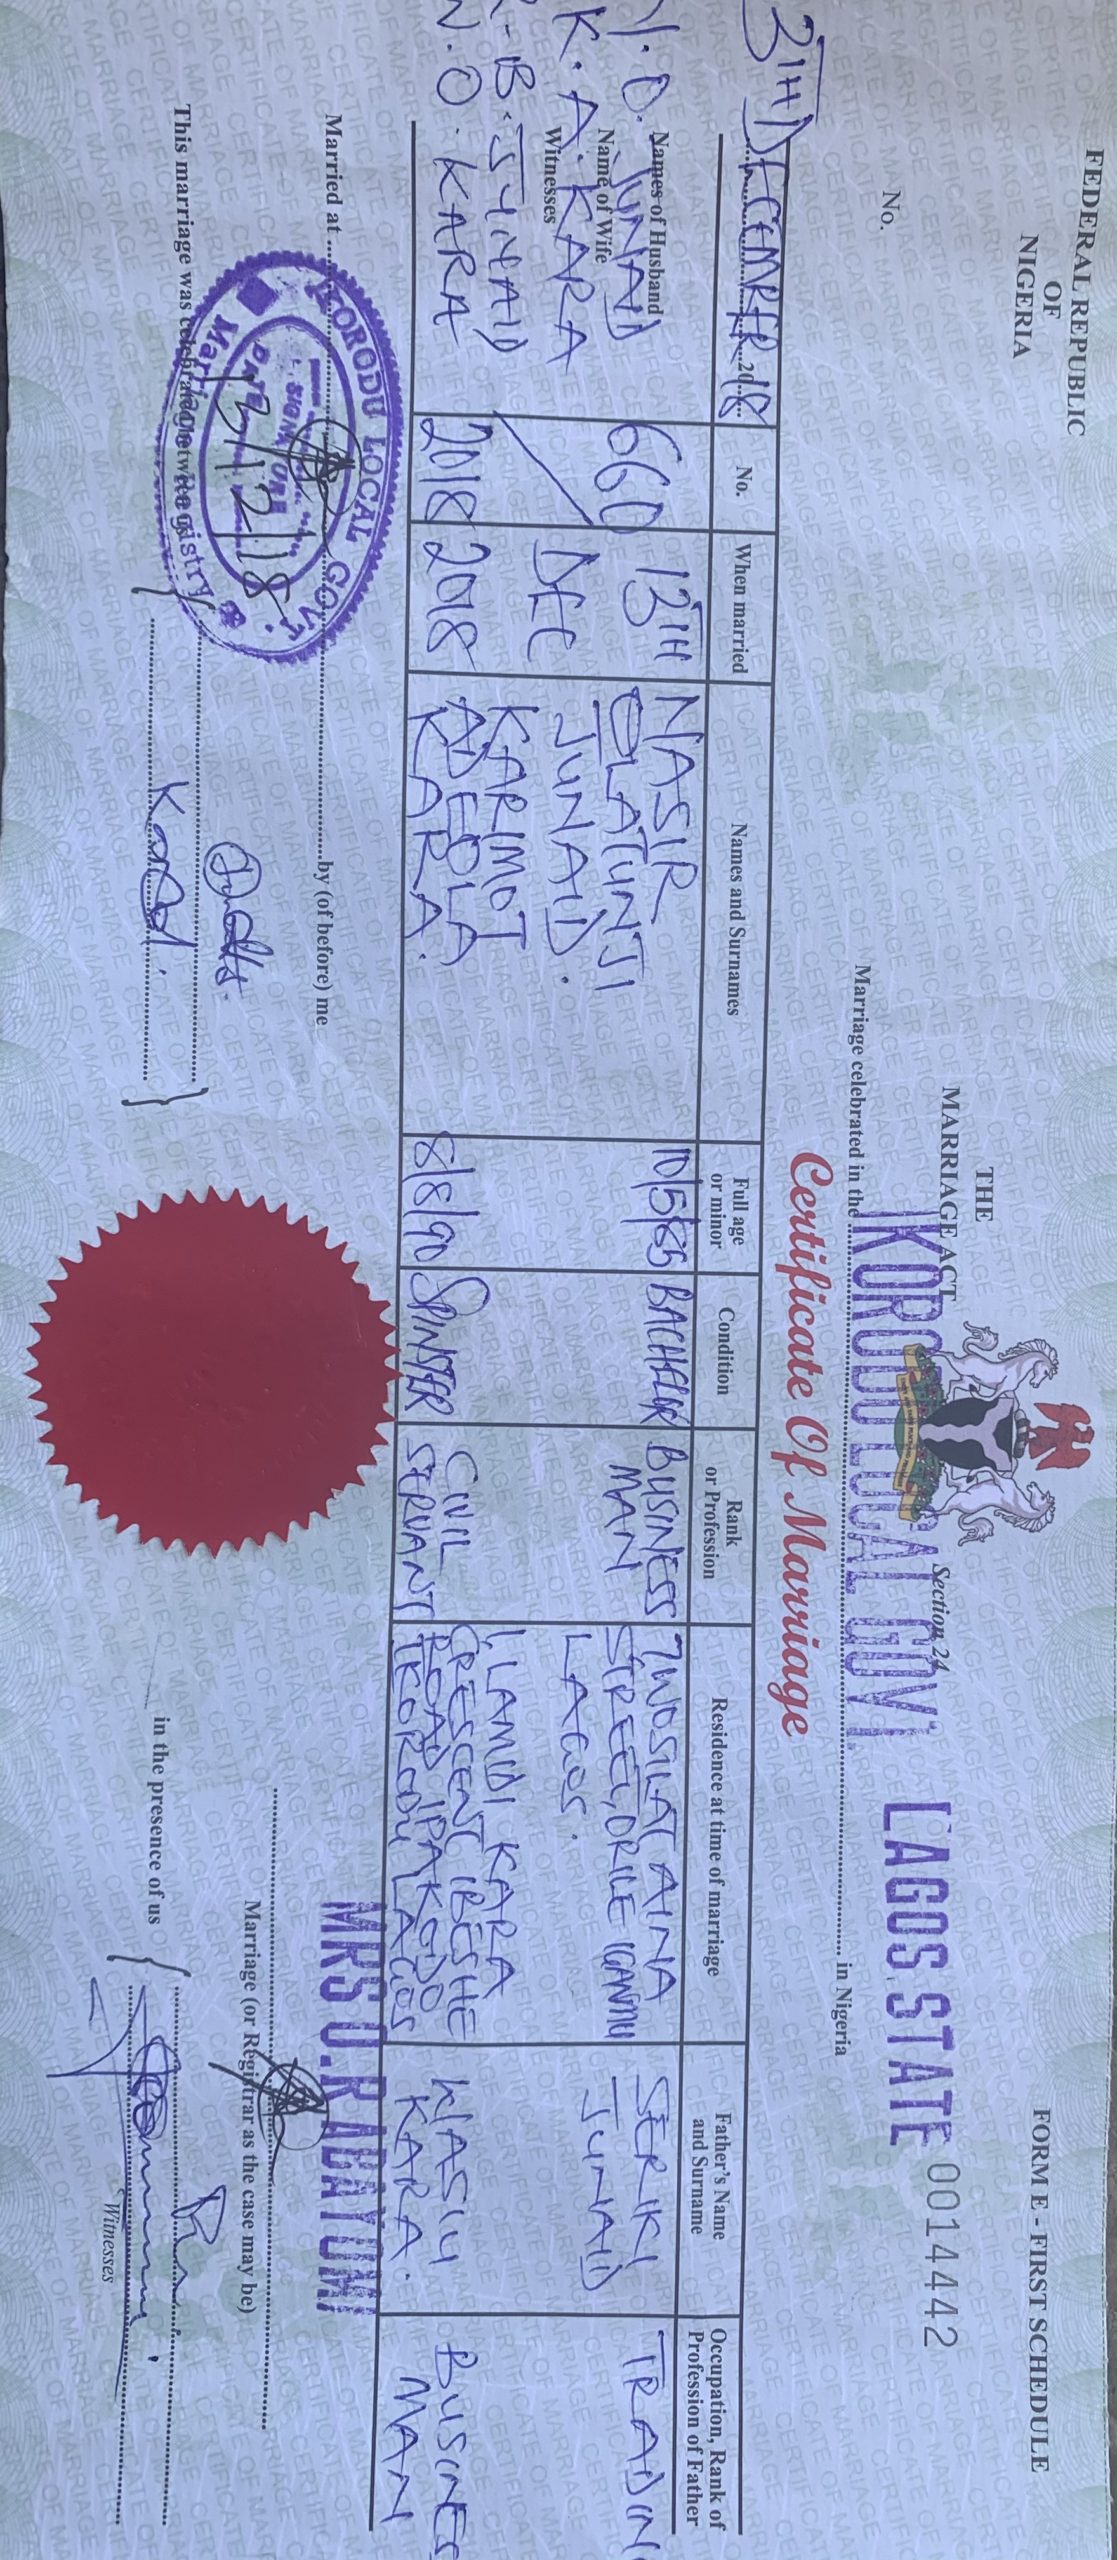 FEDERAL REPUBLIC
OF
NIGERIA
THE
MARRIAGE ACT
Section 24
FORM E - FIRST SCHEDULE
No.
IKORODU LOCAL GOVT. LAGOS STATE
0014442
Marriage celebrated in the in Nigeria
Certificate Of Marriage
3TH DECEMBER 2018
Names of Husband
Name of Wife
Witnesses
N.O. JUNAID
K.A. KARA
B. JUNAID
N.O. KARA
No.
When married
Names and Surnames
Full age
or minor
Condition
Rank
or Profession
Residence at time of marriage
Father's Name
and Surname
Occupation, Rank of
Profession of Father
660
/
2018
13TH
DEC
2018
NASIR
OLATUNJI
JUNAID.
10/5/85
BACHELOR
BUSINESS
MAN
7 WOSILAT AINA
STREET, ORILE IGANMU
LAGOS.
SERIKI
JUNAID
TRADIN
KARIMOT
ADEOLA
KARA.
8/8/90
SPINSTER
CIVIL
SERVANT
1, LAMIDI KARA
CRESCENT IBESHE
ROAD IPAKODO
IKORODU LAGOS
WASIU
KARA.
BUSINES
MAN
Married at by (of before) me
MRS O.R ADAYOMI
Marriage (or Registrar as the case may be)
IKORODU LOCAL GOVT.
SIGNATURE
DATE 13/12/18
Marriage Registry
This marriage was celebrated between us
in the presence of us
Witnesses